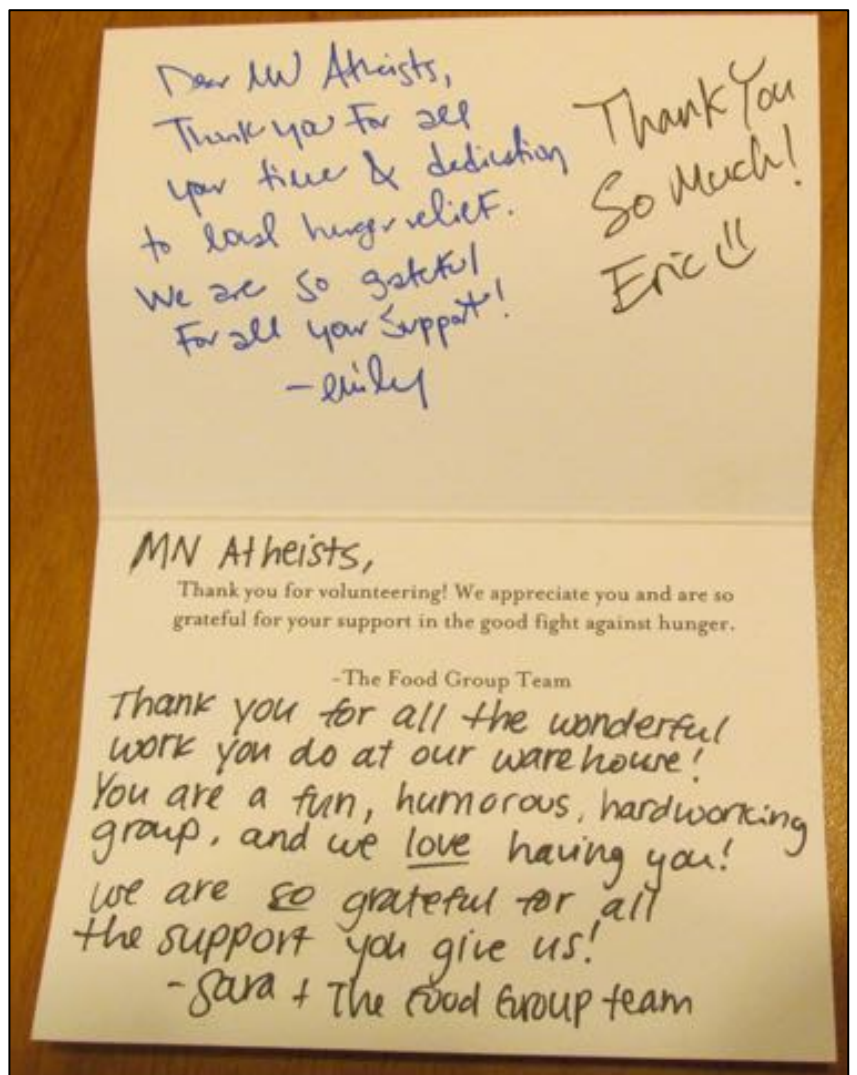 Dear MN Atheists,
Thank you For all
your time & dedication
to local hunger relief.
We are so grateful
For all your Support!
- emily
Thank You
So Much!
Eric
MN Atheists,
Thank you for volunteering! We appreciate you and are so
grateful for your support in the good fight against hunger.
-The Food Group Team
Thank you for all the wonderful
work you do at our warehouse!
You are a fun, humorous, hardworking
group, and we love having you!
we are so grateful for all
the support you give us!
- Sara + The Food Group team